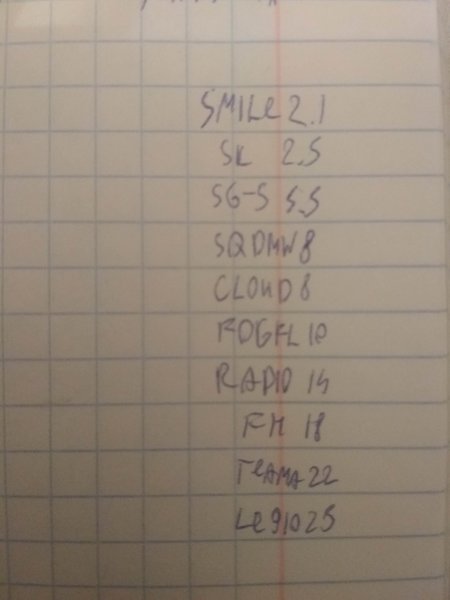 SMILe 2.1
SK 2.5
SG-S 5.5
SQDMW 8
CLOUD 8
FOGFL 10
RADIO 15
FM 18
TeAMA 22
Le91025